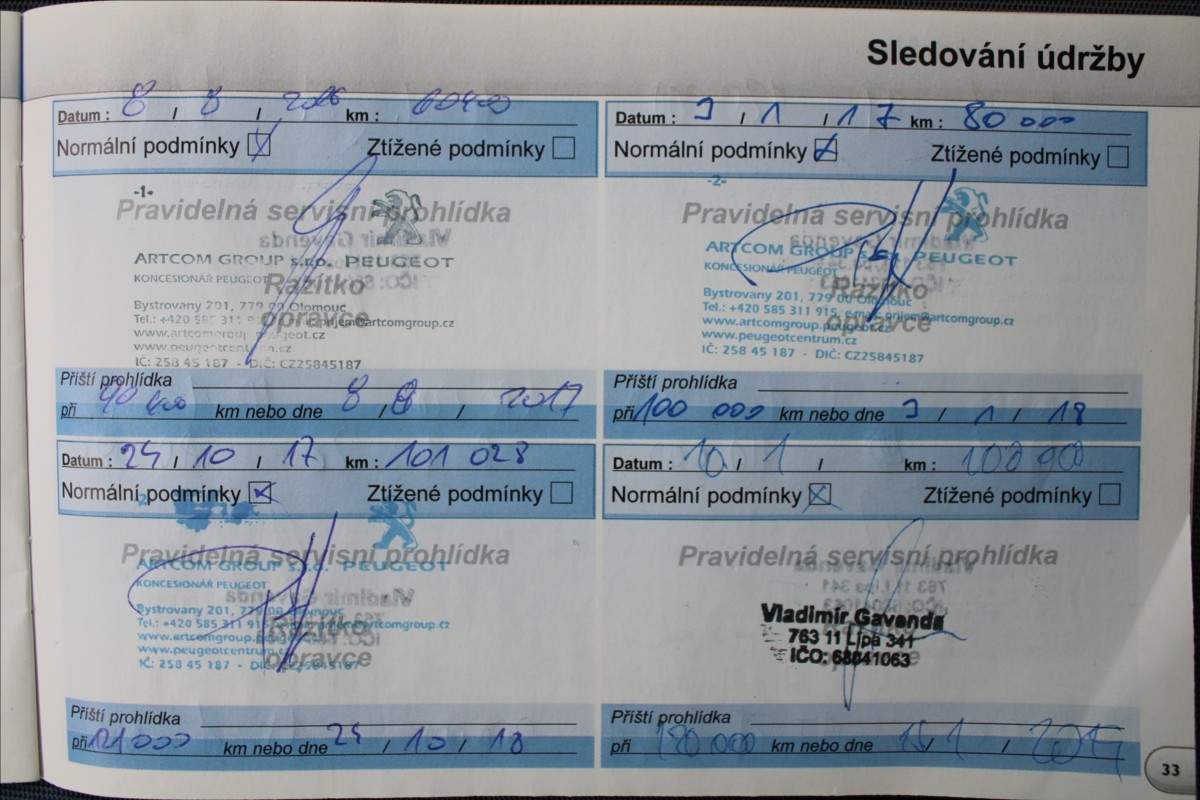 Sledování údržby
Datum : 8 / 8 / 2016 km :
Normální podmínky Ztížené podmínky
-1-
Pravidelná servisní prohlídka
ARTCOM GROUP s.r.o. PEUGEOT
KONCESIONÁŘ PEUGEOT
Razítko
Bystrovany 201, 779 00 Olomouc
opravce
Tel.: +420 585 311 prijem@artcomgroup.cz
www.artcomgroup.peugeot.cz
www.peugeotcentrum.cz
IČ: 258 45 187 - DIČ: CZ25845187
Příští prohlídka
při km nebo dne 8 / 8 / 2017
Datum : 3 / 1 / 17 km : 80 000
Normální podmínky Ztížené podmínky
-2-
Pravidelná servisní prohlídka
ARTCOM GROUP s.r.o. PEUGEOT
KONCESIONÁŘ PEUGEOT
Razítko
Bystrovany 201, 779 00 Olomouc
Tel.: +420 585 311 915, email: prijem@artcomgroup.cz
opravce
www.artcomgroup.peugeot.cz
www.peugeotcentrum.cz
IČ: 258 45 187 - DIČ: CZ25845187
Příští prohlídka
při 100 000 km nebo dne 3 / 1 / 18
Datum : 24 / 10 / 17 km : 101 028
Normální podmínky Ztížené podmínky
Pravidelná servisní prohlídka
ARTCOM GROUP s.r.o. PEUGEOT
KONCESIONÁŘ PEUGEOT
Bystrovany 201, 779 00 Olomouc
Tel.: +420 585 311 915 prijem@artcomgroup.cz
Razítko
www.artcomgroup.peugeot.cz
www.peugeotcentrum.cz
opravce
IČ: 258 45 187 - DIČ: CZ25845187
Příští prohlídka
při 121 000 km nebo dne 24 / 10 / 18
Datum : 10 / 1 / km :
Normální podmínky Ztížené podmínky
Pravidelná servisní prohlídka
Vladimír Gavenda
763 11 Lípa 341
IČO: 68041063
Příští prohlídka
při km nebo dne / 1 /
33